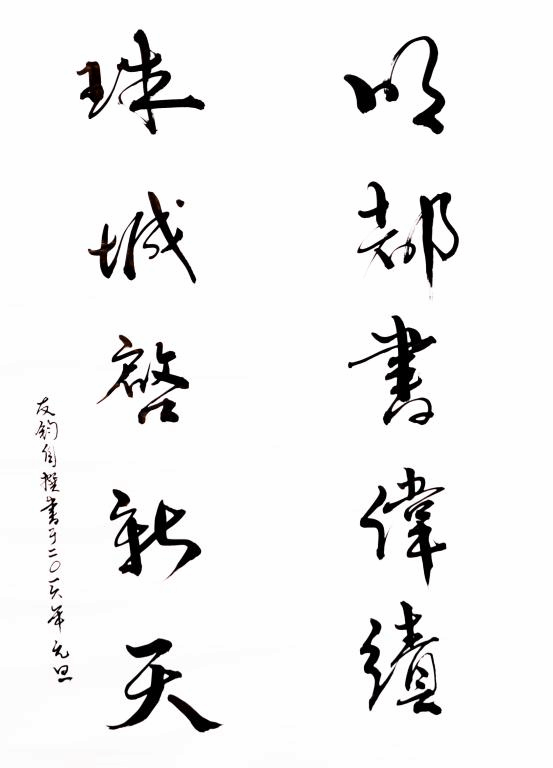 明都書偉績
珠城啓新天
友鈞自撰書于二〇一六年元旦